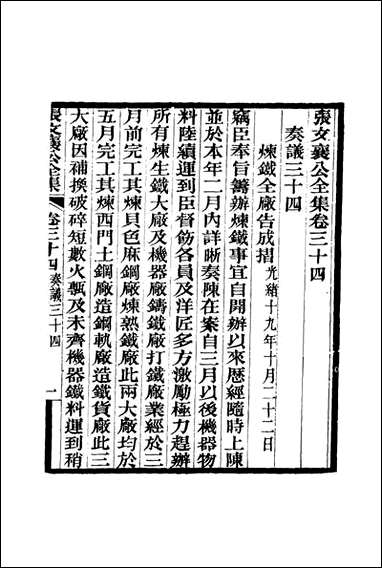 張文襄公全集卷三十四
奏議三十四
煉鐵全廠告成摺光緒十九年十月二十二日
竊臣奉旨籌辦煉鐵事宜自開辦以來歷經隨時上陳
並於本年二月內詳晰奏陳在案自三月以後機器物
料陸續運到臣督飭各員及洋匠多方激勵極力趕辦
所有煉生鐵大廠及機器廠鑄鐵廠打鐵廠業經於三
月前完工其煉貝色麻鋼廠煉熟鐵廠此兩大廠均於
五月完工其煉西門土鋼廠造鋼軌廠造鐵貨廠此三
大廠因補換破碎短數火甎及未齊機器鐵料運到稍
張文襄公全集 卷三十四 奏議三十四 一